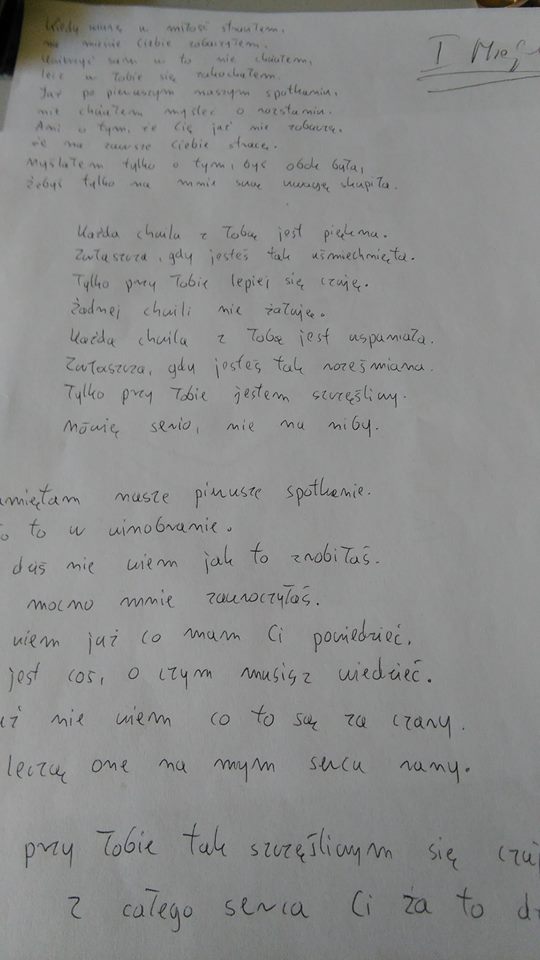 Kiedy wiarę w miłość straciłem,
na mieście Ciebie zobaczyłem.
Uwierzyć sam w to nie chciałem,
lecz w Tobie się zakochałem.
Już po pierwszym naszym spotkaniu,
nie chciałem myśleć o rozstaniu.
Ani o tym, że Cię już nie zobaczę,
że na zawsze Ciebie stracę.
Myślałem tylko o tym, byś obok była,
żebyś tylko na mnie swą uwagę skupiła.
I Miejs
Każda chwila z Tobą jest piękna.
Zwłaszcza, gdy jesteś tak uśmiechnięta.
Tylko przy Tobie lepiej się czuję.
Żadnej chwili nie żałuję.
Każda chwila z Tobą jest wspaniała.
Zwłaszcza, gdy jesteś tak roześmiana.
Tylko przy Tobie jestem szczęśliwy.
Mówię serio, nie na niby.
amiętam nasze pierwsze spotkanie.
o to w winobranie.
dziś nie wiem jak to zrobiłaś.
mocno mnie zauroczyłaś.
wiem już co mam Ci powiedzieć,
jest coś, o czym musisz wiedzieć.
uż nie wiem co to są za czary.
leczą one na mym sercu rany.
przy Tobie tak szczęśliwym się czuj
z całego serca Ci za to d